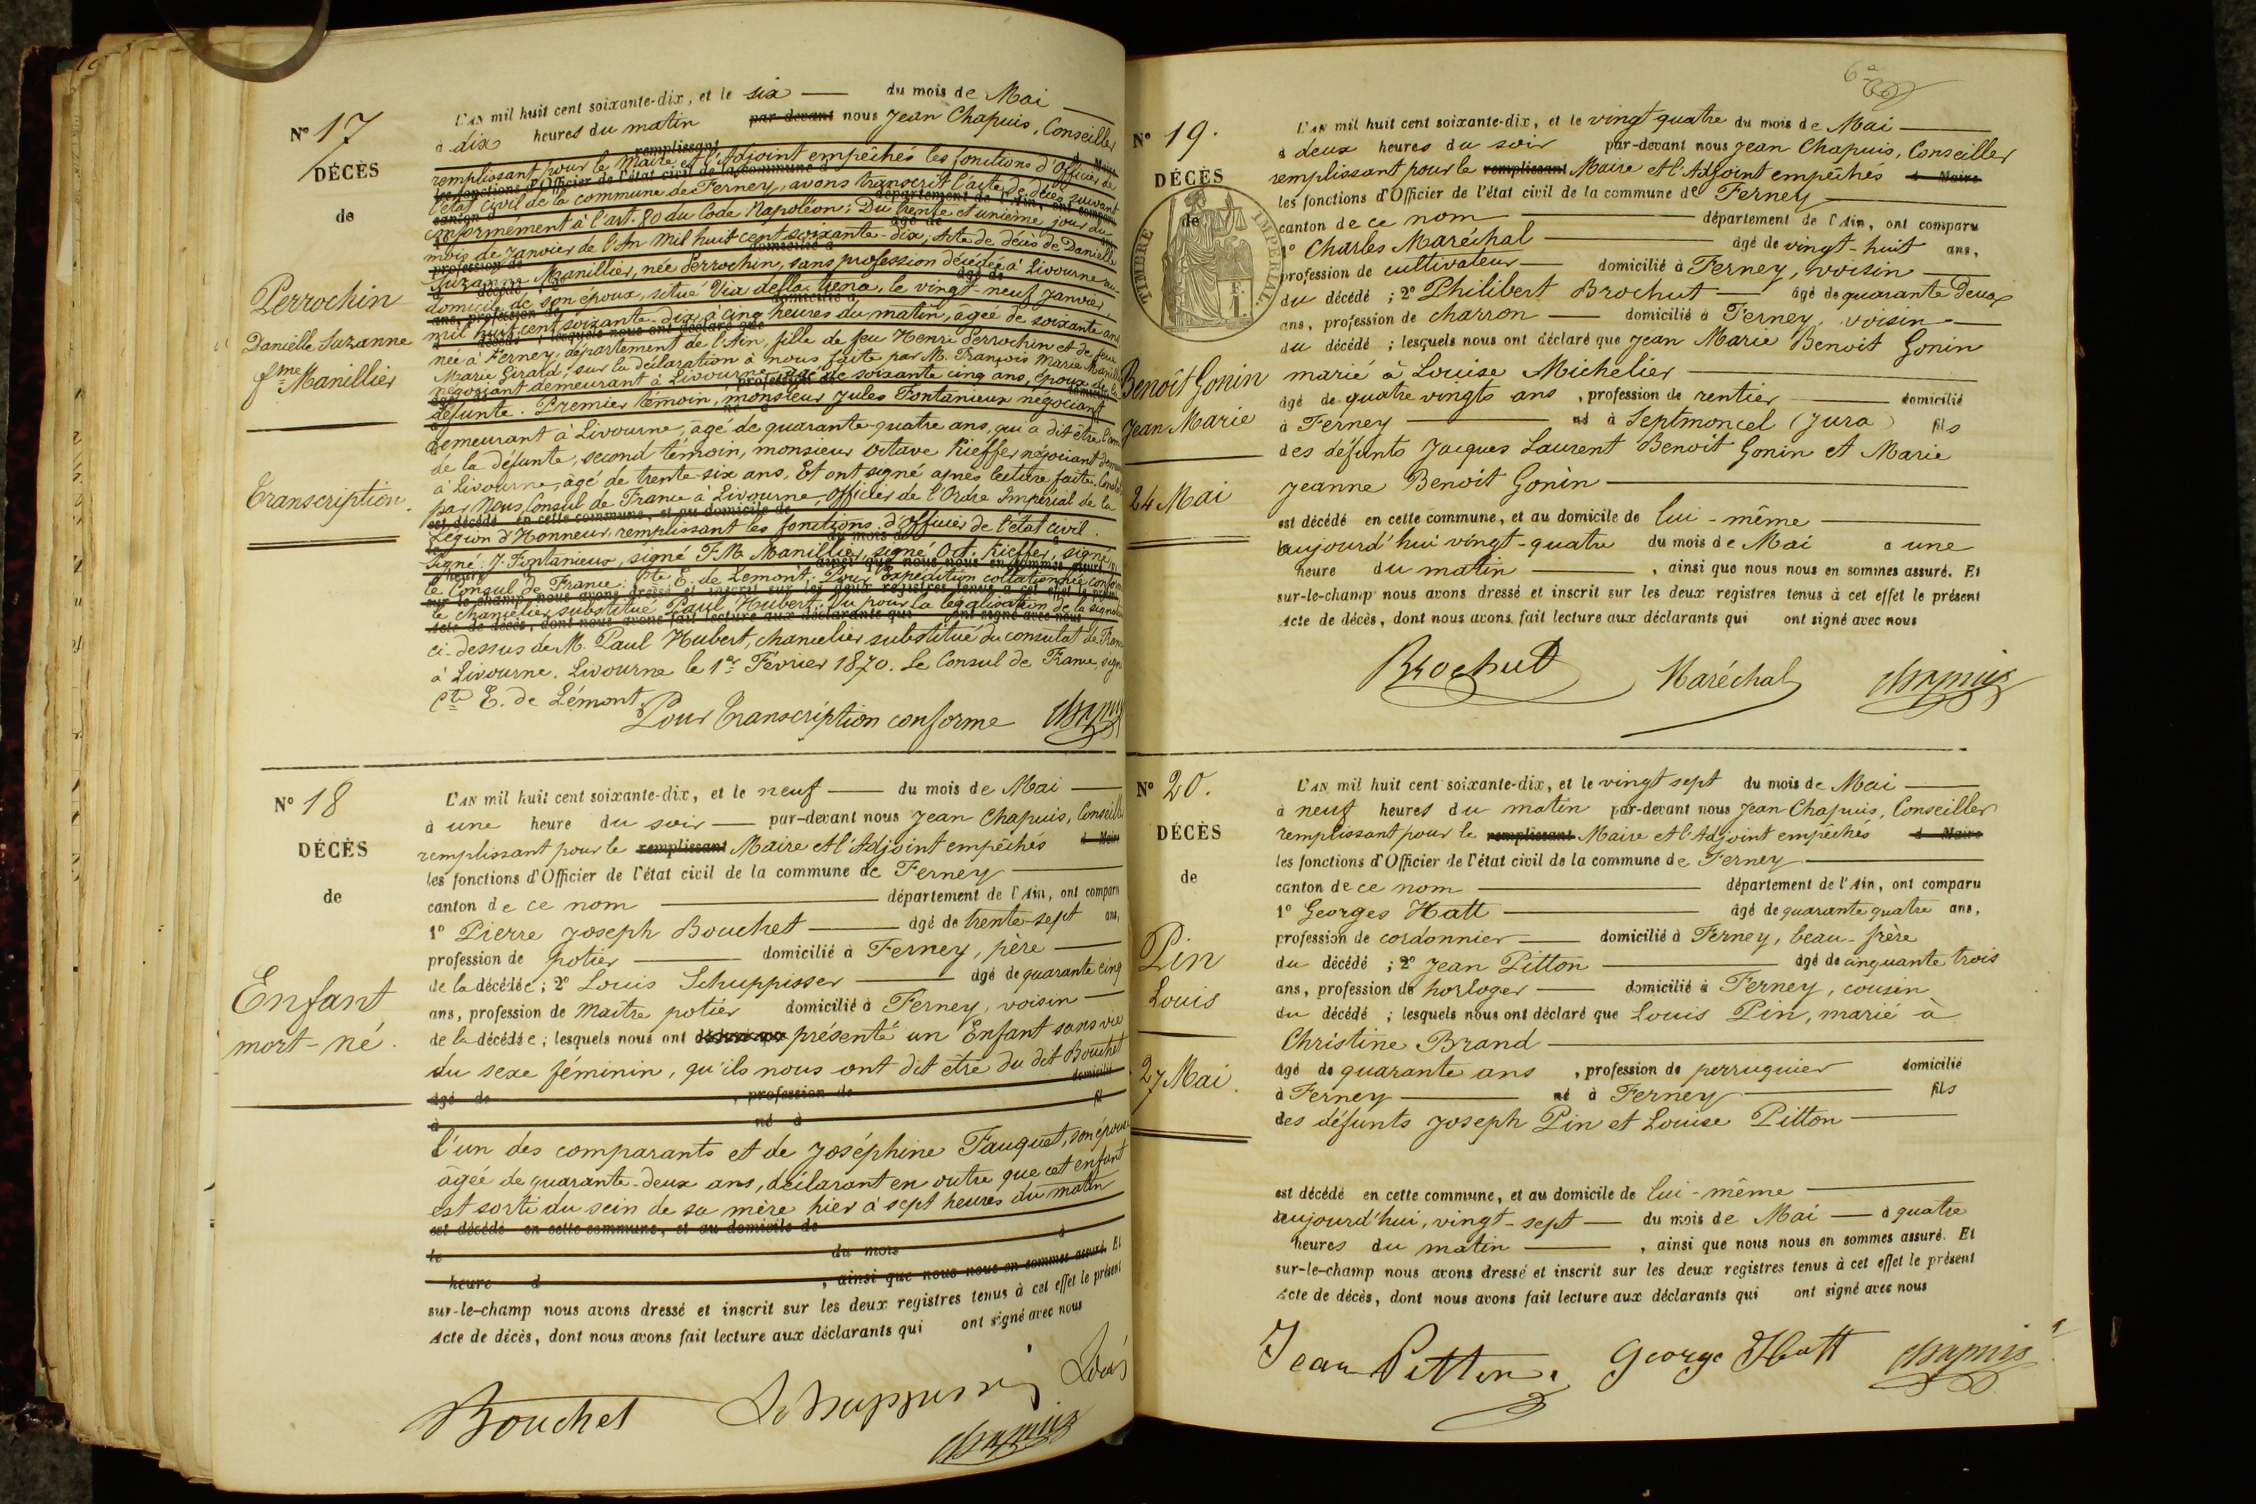 N° 17
DÉCÈS
de
Perrochin
Danielle Suzanne
fme Manillier
Transcription.
L'AN mil huit cent soixante-dix, et le six du mois de Mai
à dix heures du matin par-devant nous Jean Chapuis, Conseiller
remplissant pour le Maire et l'Adjoint empêchés les fonctions d'Officier de
l'état civil de la commune de Ferney, avons transcrit l'acte de décès suivant
conformément à l'art. 80 du Code Napoléon: Du trente et unième jour du
mois de Janvier de l'An mil huit cent soixante-dix, Acte de décès de Danielle
Suzanne Manillier, née Perrochin, sans profession décédée à Livourne au
domicile de son époux, situé Via della , le vingt-neuf Janvier
mil huit cent soixante-dix à cinq heures du matin, agée de soixante ans
née à Ferney, département de l'Ain, fille de feu Henri Perrochin et de feue
Marie Girard; sur la déclaration à nous faite par M. François Marie Manillier
négociant demeurant à Livourne, âgé de soixante cinq ans, époux de la
défunte. Premier témoin, monsieur Jules Fontanieux négociant
demeurant à Livourne, âgé de quarante-quatre ans, qui a dit être l'ami
de la défunte, second témoin, monsieur Octave Kieffer négociant
à Livourne, âgé de trente-six ans, Et ont signé après lecture faite,
par Nous Consul de France à Livourne, officier de l'Ordre Impérial de la
Légion d'Honneur, remplissant les fonctions d'officier de l'état civil.
Signé: J. Fontanieux, signé F. M. Manillier, signé Oct. Kieffer, signé
le Consul de France: Cte E. de Lemont; Pour Expédition collationnée conforme
le chancelier substitué Paul Hubert. Vu pour la légalisation de la signature
ci-dessus de M. Paul Hubert, chancelier substitué du consulat de France
à Livourne. Livourne le 1er Février 1870. Le Consul de France, signé
Cte E. de Lémont.
Pour Transcription conforme Chapuis
N° 18
DÉCÈS
de
Enfant
mort-né.
L'AN mil huit cent soixante-dix, et le neuf du mois de Mai
à une heure du soir par-devant nous Jean Chapuis, Conseiller
remplissant pour le remplissant Maire et l'Adjoint empêchés d Maire
les fonctions d'Officier de l'état civil de la commune de Ferney
canton de ce nom département de l'Ain, ont comparu
1° Pierre Joseph Bouchet âgé de trente-sept ans,
profession de potier domicilié à Ferney, père
de la décédée; 2° Louis Schuppisser âgé de quarante cinq
ans, profession de Maître potier domicilié à Ferney, voisin
de la décédée; lesquels nous ont déclaré que présenté un Enfant sans vie
du sexe féminin, qu'ils nous ont dit être du dit Bouchet
âgé de , profession de domicilié
à né à fil
l'un des comparants et de Joséphine Fauquet, son épouse
âgée de quarante-deux ans, déclarant en outre que cet enfant
est sorti du sein de sa mère hier à sept heures du matin
est décédé en cette commune, et au domicile de
le du mois à
heure d , ainsi que nous nous en sommes assuré. Et
sur-le-champ nous avons dressé et inscrit sur les deux registres tenus à cet effet le présent
Acte de décès, dont nous avons fait lecture aux déclarants qui ont signé avec nous
Bouchet Schuppisser Louis
Chapuis
6e
N° 19.
DÉCÈS
de
TIMBRE IMPÉRIAL.
Benoît Gonin
Jean Marie
24 Mai
L'AN mil huit cent soixante-dix, et le vingt quatre du mois de Mai
à deux heures du soir par-devant nous Jean Chapuis, Conseiller
remplissant pour le remplissant Maire et l'Adjoint empêchés d Maire
les fonctions d'Officier de l'état civil de la commune de Ferney
canton de ce nom département de l'Ain, ont comparu
1° Charles Maréchal âgé de vingt-huit ans,
profession de cultivateur domicilié à Ferney, voisin
du décédé; 2° Philibert Brochut âgé de quarante Deux
ans, profession de charron domicilié à Ferney, voisin
du décédé; lesquels nous ont déclaré que Jean Marie Benoit Gonin
marié à Louise Michelier
âgé de quatre vingts ans, profession de rentier domicilié
à Ferney né à Septmoncel (Jura) fils
des défunts Jacques Laurent Benoit Gonin et Marie
Jeanne Benoit Gonin
est décédé en cette commune, et au domicile de lui-même
aujourd'hui vingt-quatre du mois de Mai à une
heure du matin, ainsi que nous nous en sommes assuré. Et
sur-le-champ nous avons dressé et inscrit sur les deux registres tenus à cet effet le présent
Acte de décès, dont nous avons fait lecture aux déclarants qui ont signé avec nous
Brochut Maréchal Chapuis
N° 20.
DÉCÈS
de
Pin
Louis
27 Mai.
L'AN mil huit cent soixante-dix, et le vingt sept du mois de Mai
à neuf heures du matin par-devant nous Jean Chapuis, Conseiller
remplissant pour le remplissant Maire et l'Adjoint empêchés d Maire
les fonctions d'Officier de l'état civil de la commune de Ferney
canton de ce nom département de l'Ain, ont comparu
1° Georges Hatt âgé de quarante quatre ans,
profession de cordonnier domicilié à Ferney, beau-frère
du décédé; 2° Jean Pitton âgé de cinquante trois
ans, profession de horloger domicilié à Ferney, cousin
du décédé; lesquels nous ont déclaré que Louis Pin, marié à
Christine Brand
âgé de quarante ans, profession de perruquier domicilié
à Ferney né à Ferney fils
des défunts Joseph Pin et Louise Pitton
est décédé en cette commune, et au domicile de lui-même
aujourd'hui, vingt-sept du mois de Mai à quatre
heures du matin, ainsi que nous nous en sommes assuré. Et
sur-le-champ nous avons dressé et inscrit sur les deux registres tenus à cet effet le présent
Acte de décès, dont nous avons fait lecture aux déclarants qui ont signé avec nous
Jean Pitton. George Hatt Chapuis